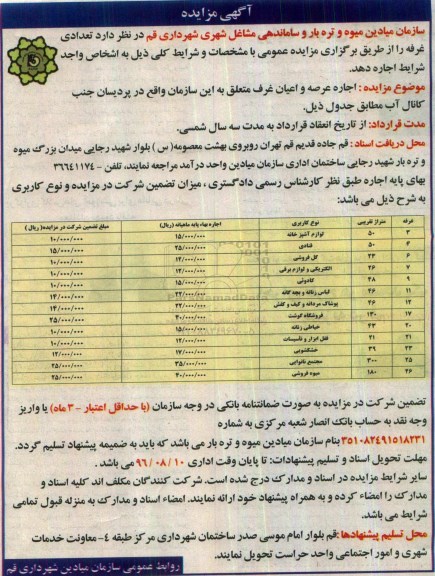 آگهی مزایده
سازمان میادین میوه و تره بار و ساماندهی مشاغل شهری شهرداری قم در نظر دارد تعدادی
غرفه را از طریق برگزاری مزایده عمومی با مشخصات و شرایط کلی ذیل به اشخاص واجد
شرایط اجاره دهد.
موضوع مزایده : اجاره عرصه و اعیان غرف متعلق به این سازمان واقع در پردیسان جنب
کانال آب مطابق جدول ذیل.
مدت قرارداد: از تاریخ انعقاد قرارداد به مدت سه سال شمسی.
محل دریافت اسناد : قم جاده قدیم قم تهران روبروی بهشت معصومه( س ) بلوار شهید رجایی میدان بزرگ میوه
و تره بار شهید رجایی ساختمان اداری سازمان میادین واحد درآمد مراجعه نمایند، تلفن - ۳۶۶۴۱۱۷۴
بهای پایه اجاره طبق نظر کارشناس رسمی دادگستری ، میزان تضمین شرکت در مزایده و نوع کاربری
به شرح ذیل می باشد:
غرفه متراژ تقریبی نوع کاربری اجاره بهاء پایه ماهیانه (ریال) مبلغ تضمین شرکت در مزایده( ریال )
۳ ۵۰ لوازم آشپز خانه ۱۵/۰۰۰/۰۰۰ ۱۰/۰۰۰/۰۰۰
۴ ۵۰ قنادی ۲۵/۰۰۰/۰۰۰ ۱۵/۰۰۰/۰۰۰
۶ ۲۳ گل فروشی ۱۲/۰۰۰/۰۰۰ ۱۰/۰۰۰/۰۰۰
۷ ۲۶ الکتریکی و لوازم برقی ۱۲/۰۰۰/۰۰۰ ۱۰/۰۰۰/۰۰۰
۹ ۴۸ کادوئی ۱۵/۰۰۰/۰۰۰ ۱۰/۰۰۰/۰۰۰
۱۱ ۴۶ لباس زنانه و بچه گانه ۲۲/۰۰۰/۰۰۰ ۱۴/۰۰۰/۰۰۰
۱۲ ۴۶ پوشاک مردانه و کیف و کفش ۲۲/۰۰۰/۰۰۰ ۱۴/۰۰۰/۰۰۰
۱۷ ۱۳۰ فروشگاه گوشت ۴۰/۰۰۰/۰۰۰ ۲۵/۰۰۰/۰۰۰
۲۰ ۲۳ خیاطی زنانه ۱۰/۰۰۰/۰۰۰
۲۱ ۲۱ قفل ابزار و تاسیسات ۱۲/۰۰۰/۰۰۰ ۱۰/۰۰۰/۰۰۰
۲۳ ۳۹ خشکشویی ۱۷/۰۰۰/۰۰۰ ۱۲/۰۰۰/۰۰۰
۲۵ ۳۰۰ مجتمع نانوایی ۳۵/۰۰۰/۰۰۰ ۲۵/۰۰۰/۰۰۰
۲۶ ۱۸۰ میوه فروشی ۴۰/۰۰۰/۰۰۰ ۲۵/۰۰۰/۰۰۰
تضمین شرکت در مزایده به صورت ضمانتنامه بانکی در وجه سازمان (با حداقل اعتبار - ۳ ماه) یا واریز
وجه نقد به حساب بانک انصار شعبه مرکزی به شماره
۳۵۱۰۸۲۴۹۱۵۱۸۲۳۱بنام سازمان میادین میوه و تره بار می باشد که باید به ضمیمه پیشنهاد تسلیم گردد.
مهلت تحویل اسناد و تسلیم پیشنهادات: تا پایان وقت اداری ۱۰ /۰۸ /۹۶ می باشد .
سایر شرایط مزایده در اسناد و مدارک درج شده است. شرکت کنندگان مکلف اند کلیه اسناد و
مدارک را امضاء کرده و به همراه پیشنهاد خود ارائه نمایند. امضاء اسناد و مدارک به منزله قبول تمامی
شرایط می باشد.
محل تسلیم پیشنهادها :قم بلوار امام موسی صدر ساختمان شهرداری مرکز طبقه ۴- معاونت خدمات
شهری و امور اجتماعی واحد حراست تحویل نمایند.
روابط عمومی سازمان میادین شهرداری قم